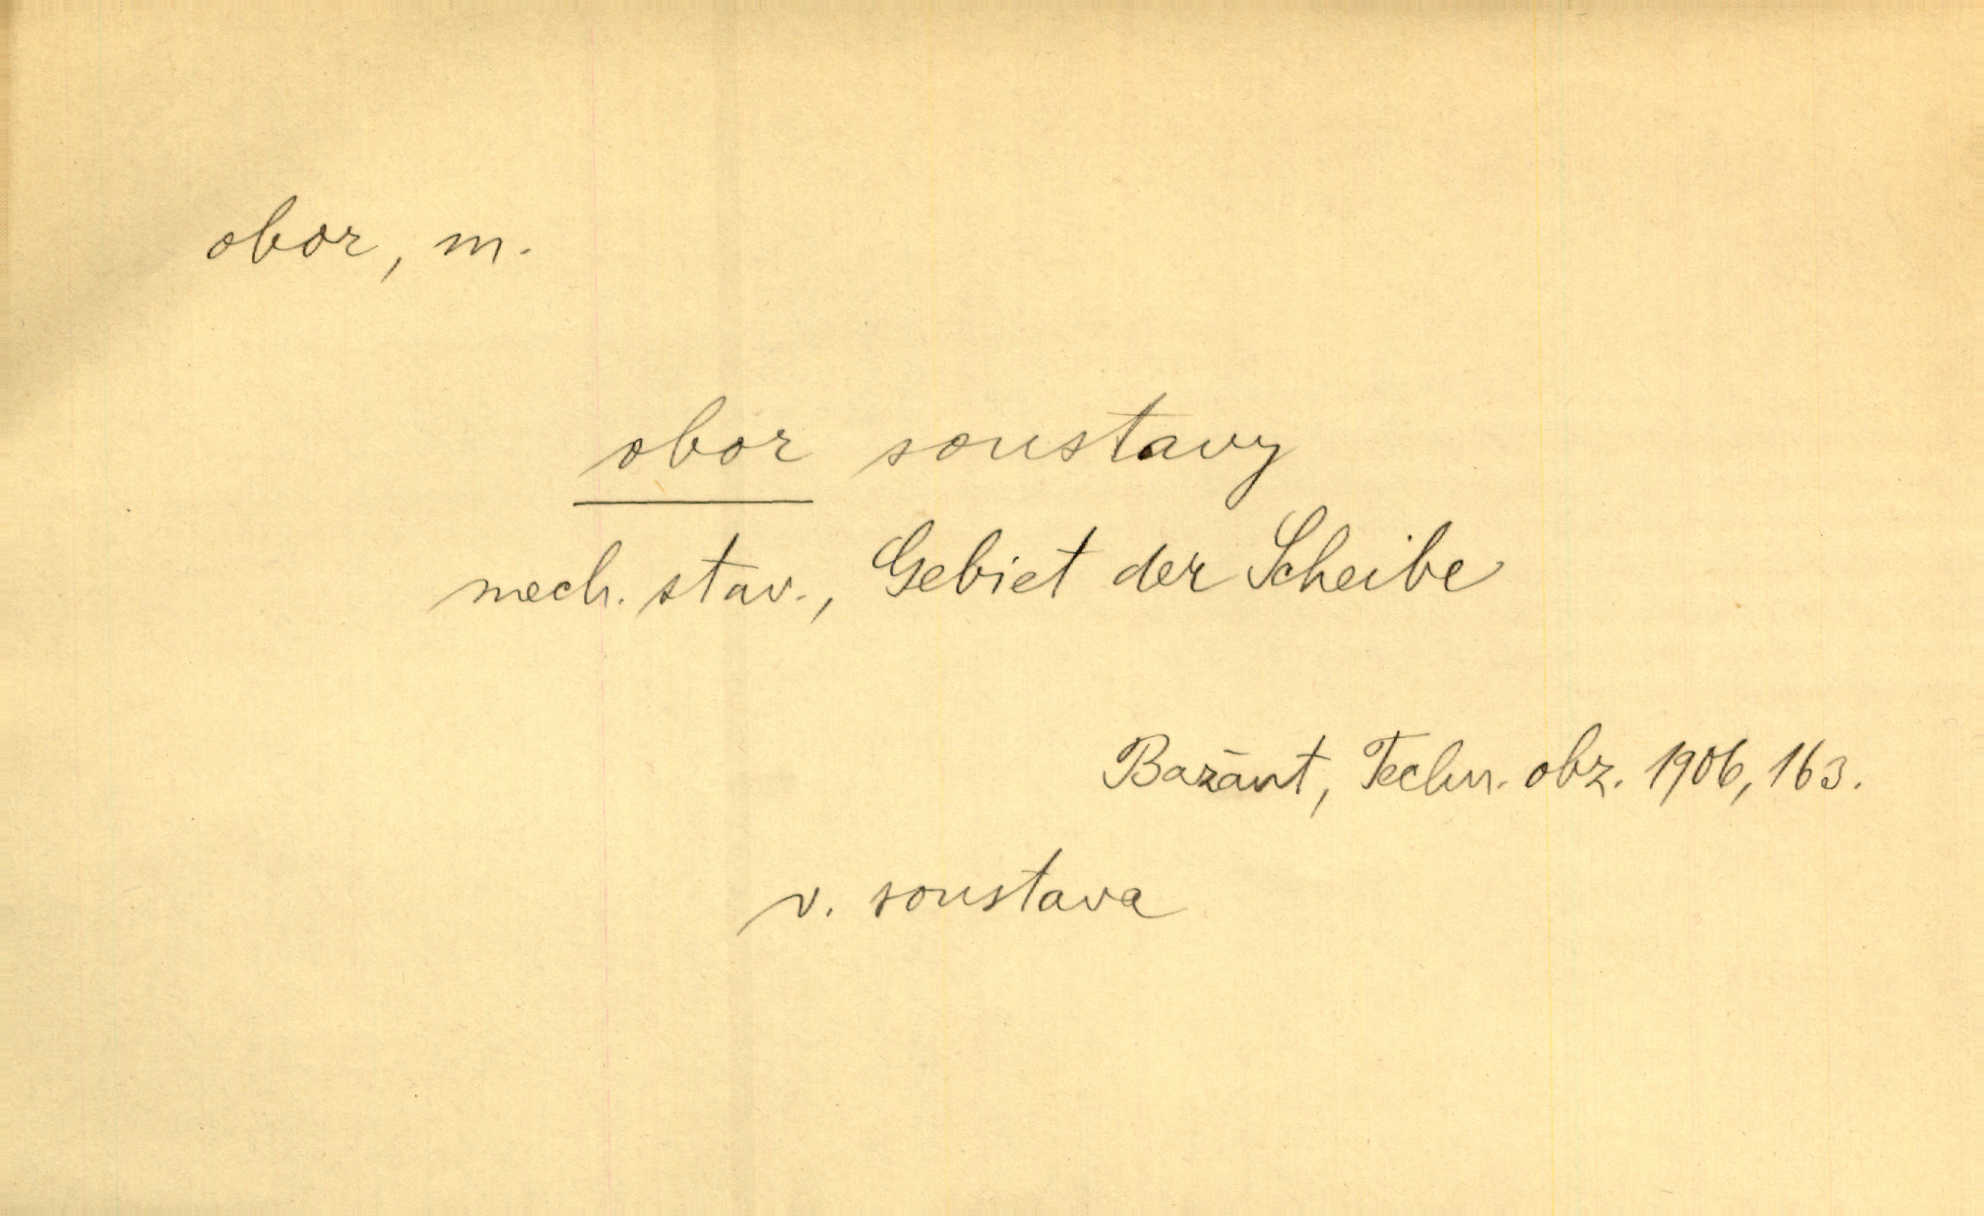 obor, m.
obor soustavy
mech. stav., Gebiet der Scheibe
Bazánt, Techn. obz. 1906, 163.
v. soustava